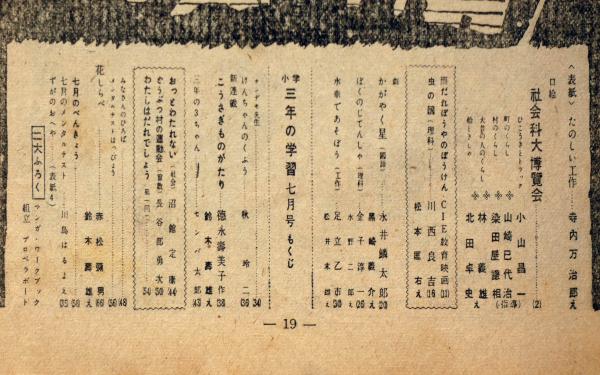 〈表紙〉たのしい工作 寺内万治郎え
口絵
社会科大博覧会 (2)
ひこうきとトラック 小山晶一
町のくらし 山崎巳代治
村のくらし 染田屋謙相
大昔の人のくらし 林義雄
船ときしゃ 北田卓史え
雨だれぼうやのぼうけん CIE教育映画 (11)
虫の国（理科） 川西良吉 (16)
松本 右え
劇
かがやく星（国語） 永井鱗太郎 (20)
黒崎義介え
ぼくのじてんしゃ（理科） 金子淳一 (26)
水野二郎え
水車であそぼう（工作） 足立乙市 (30)
松井末雄え
小学三年の学習 七月号 もくじ
けんちゃんのくふう 秋玲二 (36)
新連載
こうさぎものがたり 徳永寿美子作 (38)
鈴木寿雄え
三年の3ちゃん センバ太郎 (43)
おっとわたれない（社会） 沼館定康 (44)
どうぶつ村の運動会（音楽） 長谷部勇次 (50)
わたしはだれでしょう（第一回） (54)
みなさんのひろば
メンタルテストはっぴょう
花しらべ 赤松強男
鈴木寿雄え
七月のべんきょう
七月のメンタルテスト
ずがのおへや（表紙4） 川島はるよえ
二大ふろく マンガ・ワークブック
組立 プロペラボート
— 19 —